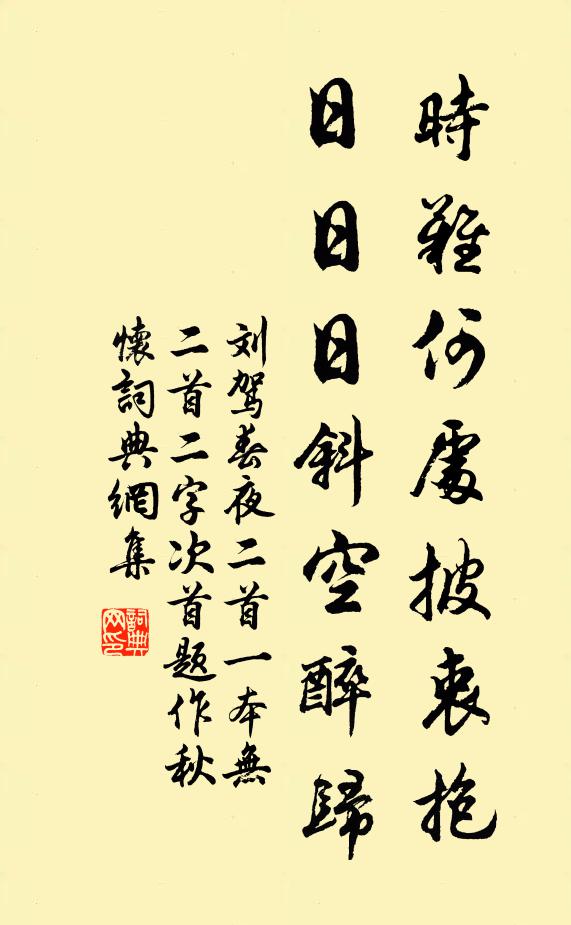 時難何處披衷抱
日日日斜空醉歸
刘駕春夜二首一本無
二首二字次首題作秋
懷詞典網集
詞典網印